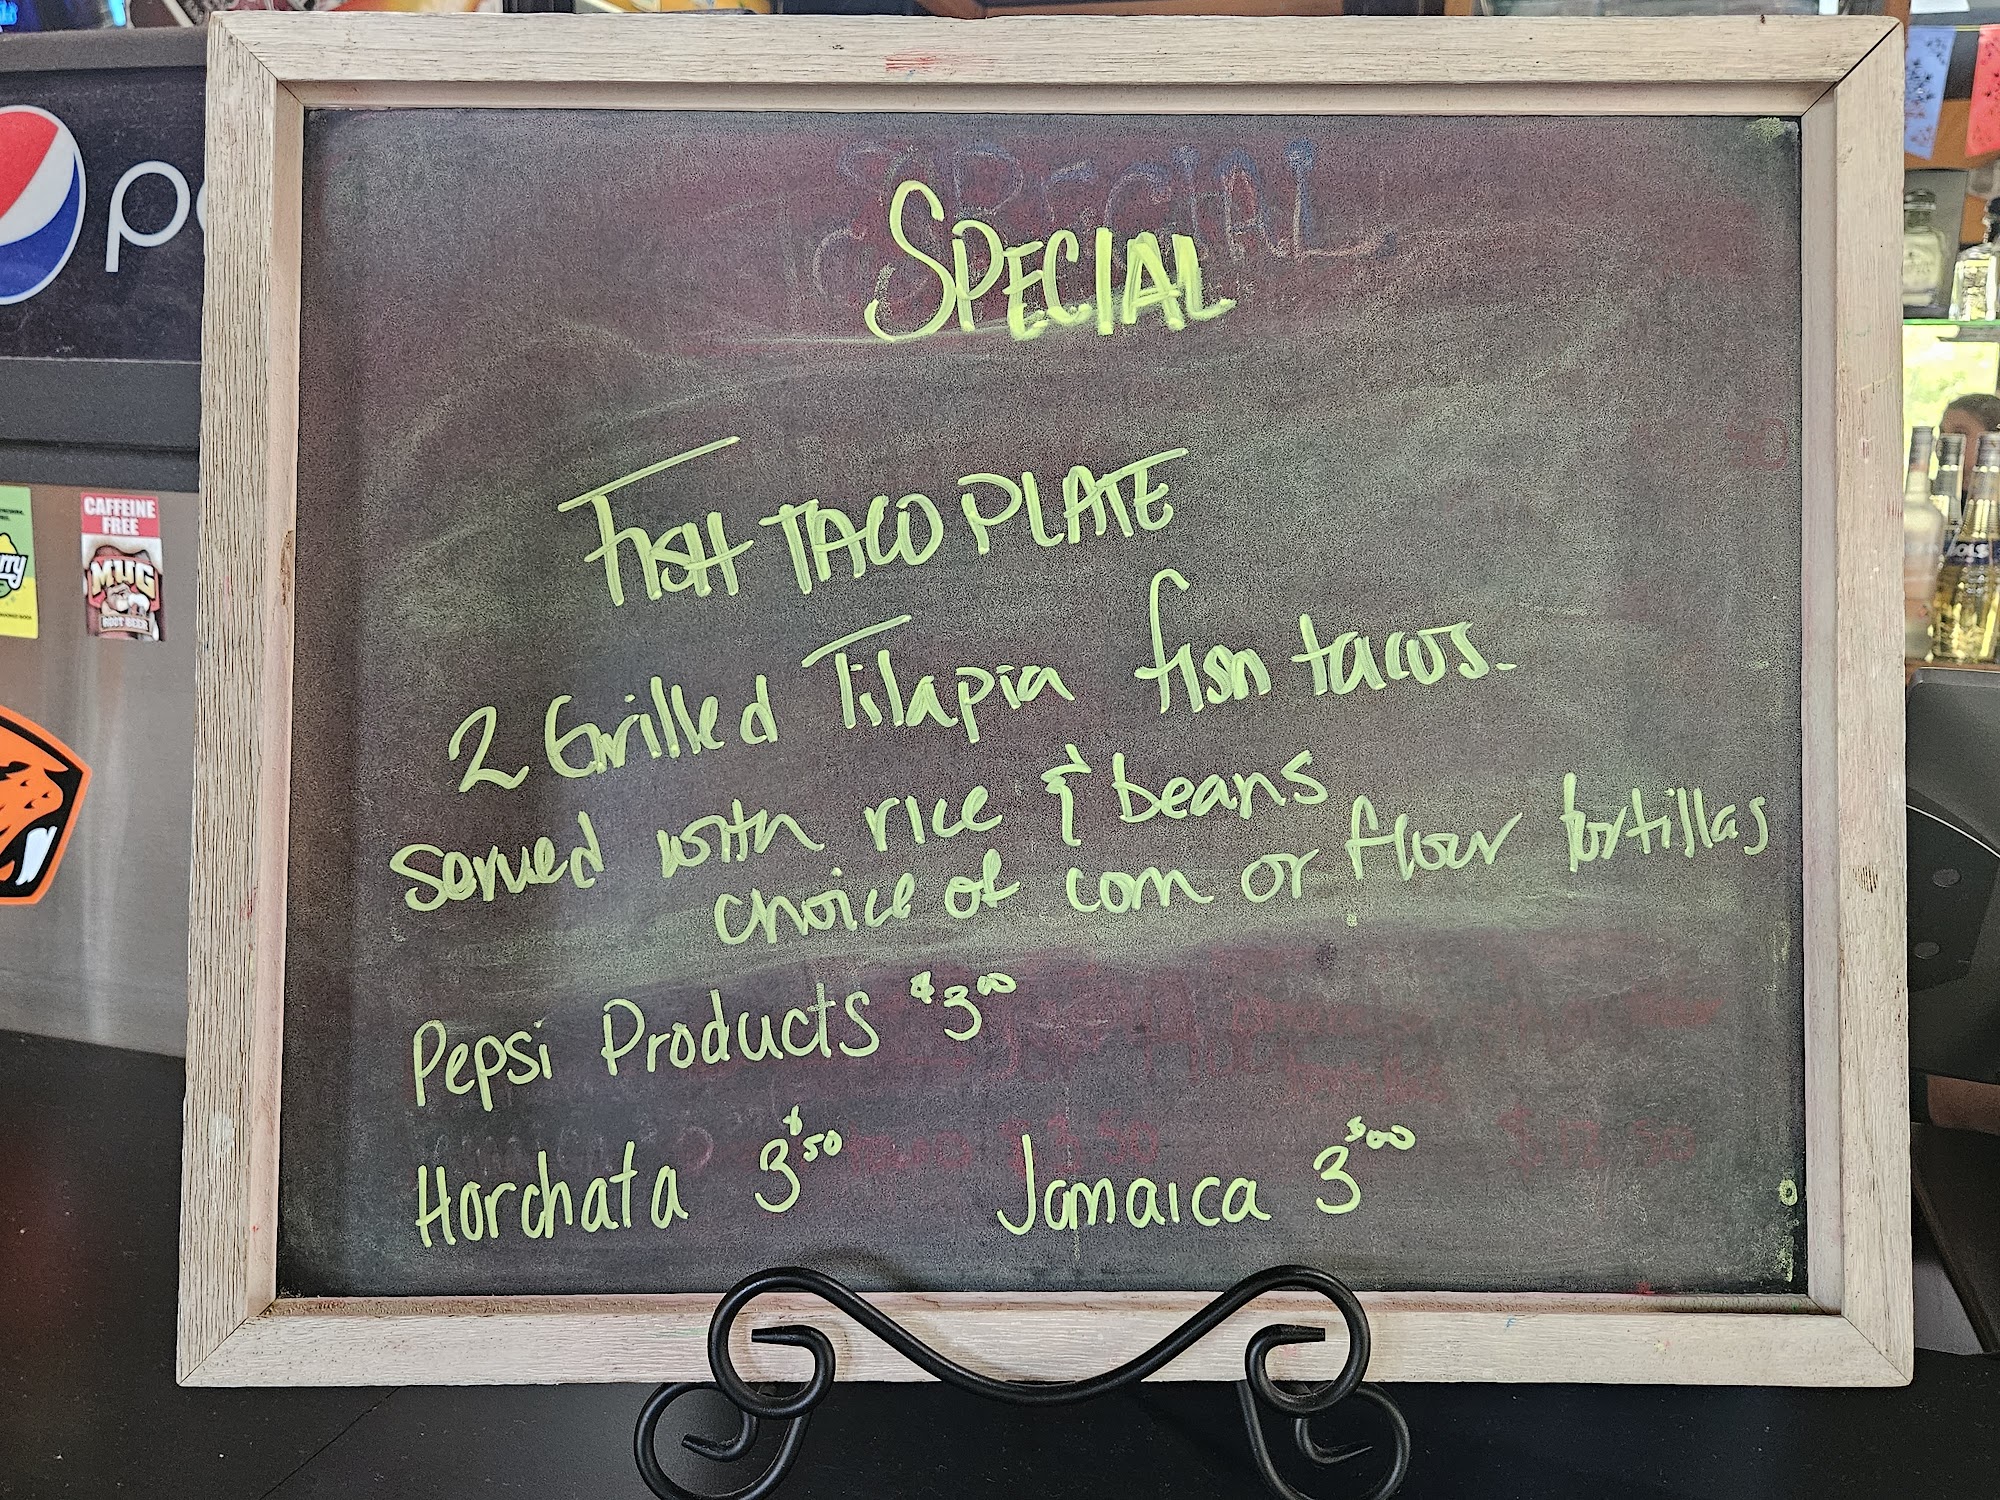 SPECIAL
FISH TACO PLATE
2 Grilled Tilapia fish tacos.
served with rice & beans
choice of corn or flour tortillas
Pepsi Products $3.00
Horchata 3$50
Jamaica 3$00
CAFFEINE
FREE
MUG
ROOT BEER